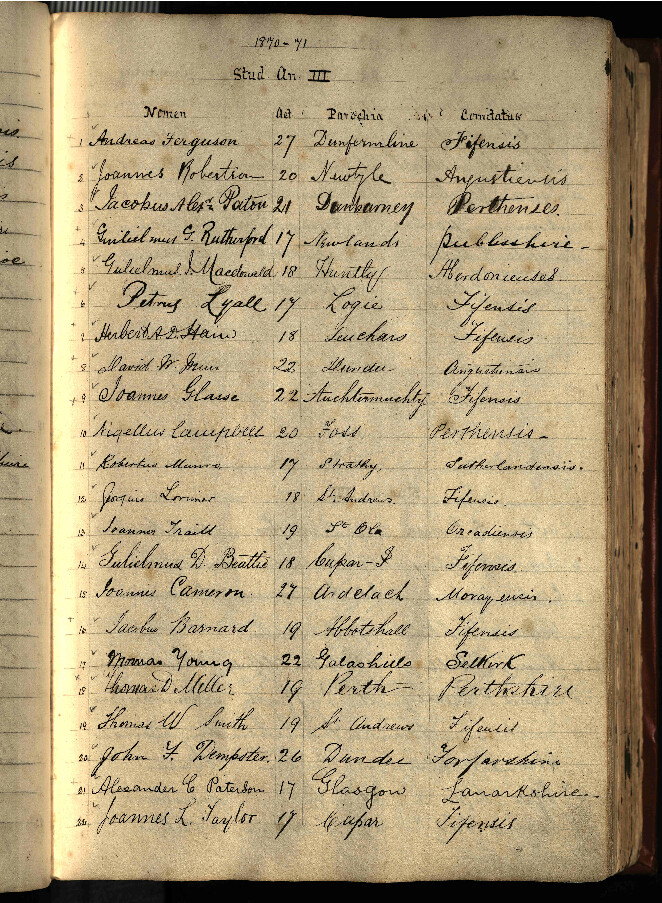 1870-71
Stud. An. III
Nomen Aet Parochia Comitatus
1 Andreas Ferguson 27 Dunfermline Fifensis
2 Joannes Robertson 20 Newtyle Angustiensis
3 Jacobus Alexr Paton 21 Dunbarney Perthenses
4 Gulielmus G. Rutherford 17 Newlands Peeblesshire-
5 Gulielmus J. Macdonald 18 Huntly Aberdonieuses.
6 Petrus Lyall 17 Logie Fifensis
7 Herbert 18 Leuchars Fifensis
8 David W. Muir 22 Dundee
9 Joannes Glasse 22 Auchtermuchty Fifensis
10 Nigellus Campbell 20 Foss Perthensis-
11 Robertus Munro 17 Strathy Sutherlandensis.
12 Georgius Lorimer 18 St. Andrews. Fifensis
13 Joannes Traill 19 St Ola Orcadiensis
14 Gulielmus D. Beattie 18 Cupar-F Fifensis.
15 Joannes Cameron 27 Ardclach Morayensis.
16 Jacobus Barnard 19 Abbotshall Fifensis
17 Thomas Young 22 Galashiels Selkirk
18 Thomas D. Miller 19 Perth- Perthshire
19 Thomas W Smith 19 St Andrews Fifensis
20 John F. Dempster. 26 Dundee Forfarshire
21 Alexander C Paterson 17 Glasgow Lanarkshire-
22 Joannes L. Taylor 17 Cupar Fifensis